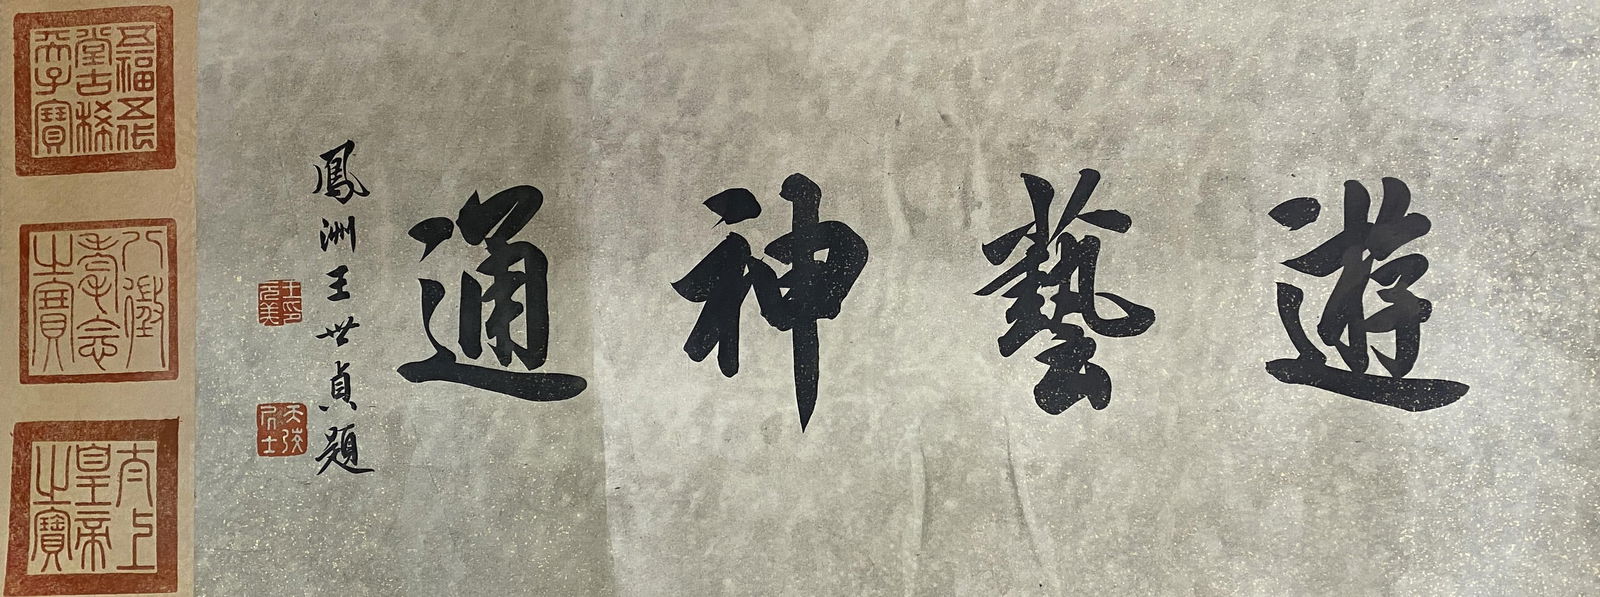 遊藝神通
鳳洲王世貞題
王印元美
天弢居士
五福五代堂古稀天子寶
八徵耄念之寶
太上皇帝之寶